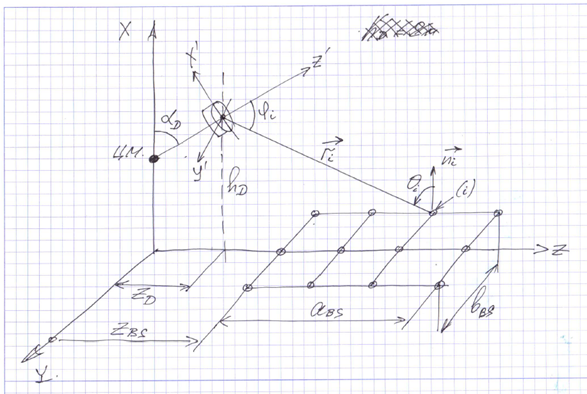 X
X'
Z'
α_D
φ_i
Ц.М.
Y'
h_D
r_i
n_i
θ_i
(i)
Z
Z_D
Z_BS
a_BS
b_BS
Y